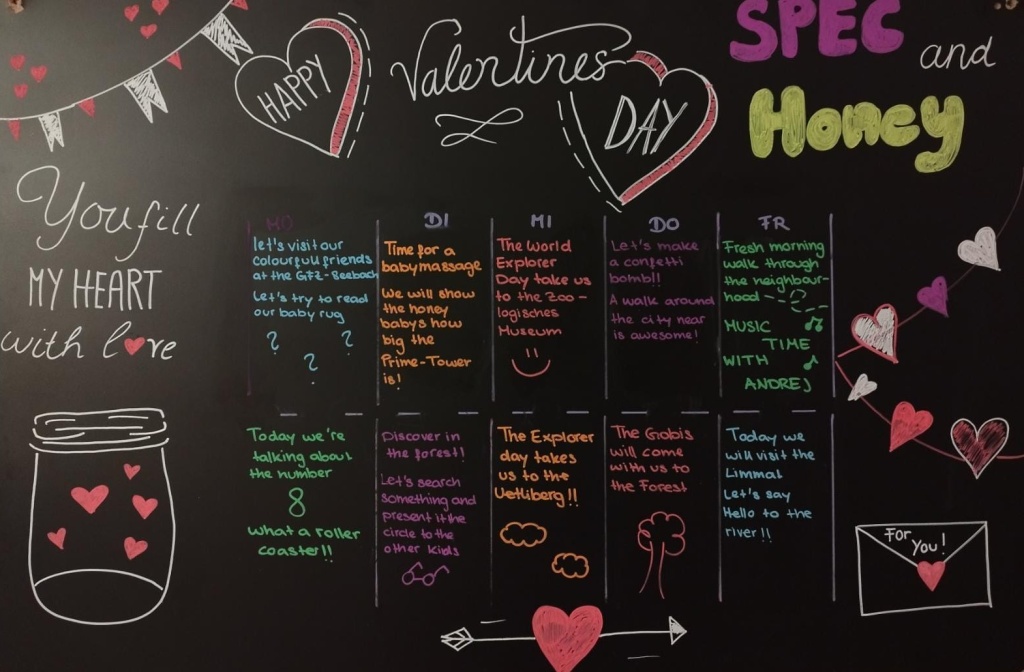 HAPPY
Valentines
DAY
SPEC
and
Honey
You fill
MY HEART
with love
MO
let's visit our
colourfull friends
at the GFZ-Seebach
Let's try to read
our baby rug
? ?
?
DI
Time for a
babymassage
We will show
the honey
babys how
big the
Prime-Tower
is!
MI
The World
Explorer
Day take us
to the Zoo-
logisches
Museum
DO
Let's make
a confetti
bomb!!
A walk around
the city near
is awesome!
FR
Fresh morning
walk through
the neighbour-
hood
MUSIC
TIME
WITH
ANDREJ
Today we're
talking about
the number
8
what a roller
coaster!!
Discover in
the forest!
Let's search
something and
present it the
circle to the
other kids
The Explorer
day takes
us to the
Uetliberg!!
The Gobis
will come
with us to
the Forest
Today we
will visit the
Limmat
Let's say
Hello to the
river!!
For
you!